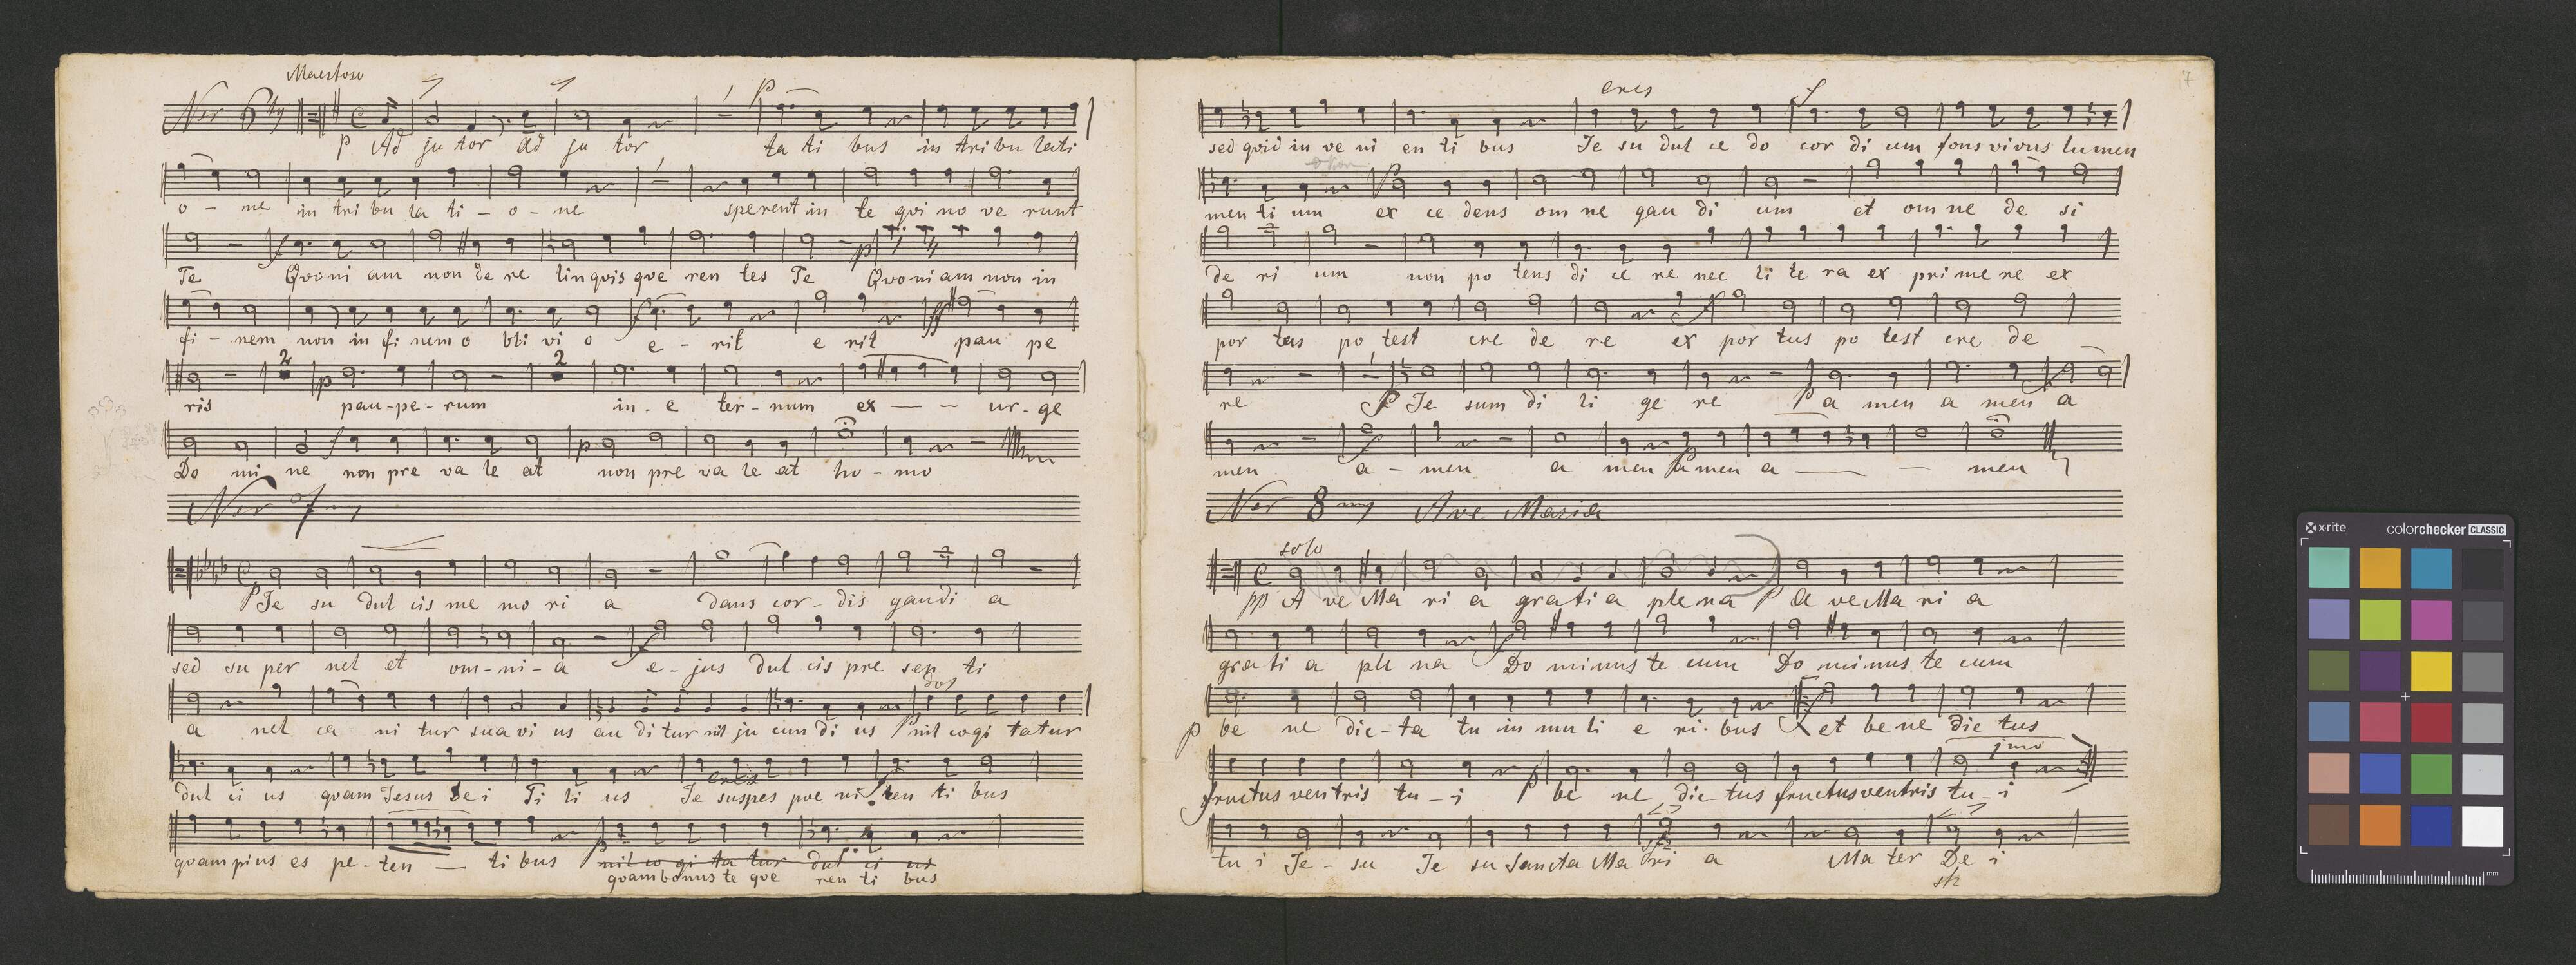 Maestoso
Nor 6ty
p Ad ju tor ad ju tor p ta ti bus in tri bu lati
o - ne in tri bu la ti - o - ne sperent in te qvi no ve runt
Te f Qvoni am non de re linqvis qve ren tes Te p Qvoniam non in
fi - nem non in finem o bli vi o e - rit e rit ff pau pe
2 2
ris p pau - pe - rum in - e ter - num ex - - - ur - ge
Do mi ne f non pre va le at p non pre va le at ho - mo
Nor 7my
p Je su dul cis me mo ri a dans cor - dis gaudi a
sed su per nel et om - ni - a f e - jus dul cis pre sen ti
a nel ca ni tur suavi us au di tur nil ju cun di us p nil cogi tatur
dul ci us qvam Jesus Dei Fi li us Je suspes poe ni ten ti bus
cres
qvampius es pe - ten - ti bus p nil co gi ta tur dul ci us
qvambonus te qve ren ti bus
7
cres f
sed qvid in ve ni en ti bus Je su dul ce do cor di um fons vivus lumen
men ti um p ex ce dens om ne gau di um et om ne de si
de ri um non po tens di ce re nec li te ra ex pri me re ex
por tus po test cre de re f ex por tus po test cre de
re p Je sum di li ge re p a men a men f a
men a - men a men p a men a - - men
Nor 8my Ave Maria
solo
pp A ve Ma ri a grati a plena p A ve Ma ri a
grati a ple na f Do minus te cum Do minus te cum
p be ne dic - ta tu in muli e ri - bus f et bene dic tus
jmo
fructus ventris tu - i p be ne dic - tus fructus ventris tu - i
tu i Je - su Je su Sancta Ma ri a Ma ter De i